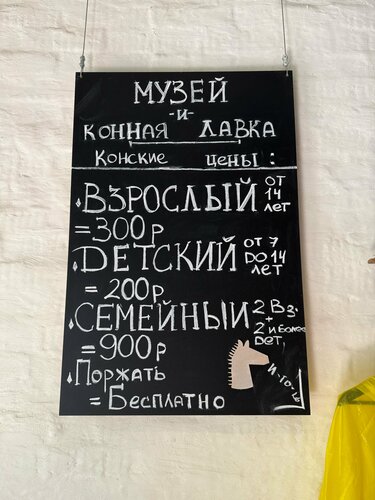 МУЗЕЙ
-и-
КОННАЯ ЛАВКА
Конские цены:
ВЗРОСЛЫЙ ОТ 14 ЛЕТ
=300р
ДЕТСКИЙ ОТ 7 ДО 14 ЛЕТ
= 200р
СЕМЕЙНЫЙ 2 Вз. + 2 и более дет.
=900р
Поржать
=Бесплатно
И-го-го